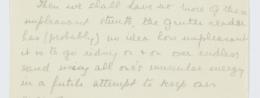 Then we shall have no more of these
unpleasant the reader
has (probably) no idea how unpleasant
it is to go riding on & on over endless
sand using all one's muscular energy
in a futile attempt to keep one